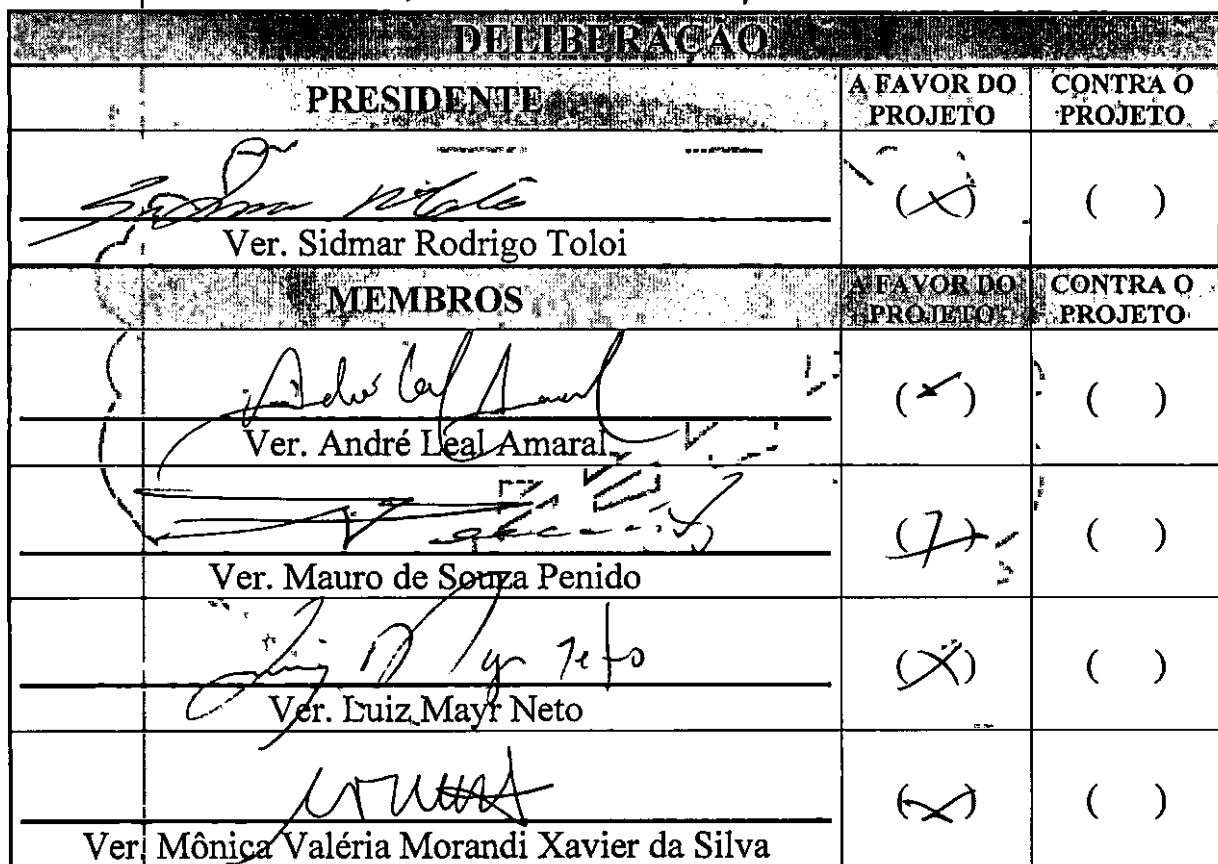 DELIBERAÇÃO
PRESIDENTE A FAVOR DO PROJETO CONTRA O PROJETO
(X) ( )
Ver. Sidmar Rodrigo Toloi
MEMBROS A FAVOR DO PROJETO CONTRA O PROJETO
( ) ( )
Ver. André Leal Amaral
( ) ( )
Ver. Mauro de Souza Penido
Neto (X) ( )
Ver. Luiz Mayr Neto
(X) ( )
Ver. Mônica Valéria Morandi Xavier da Silva